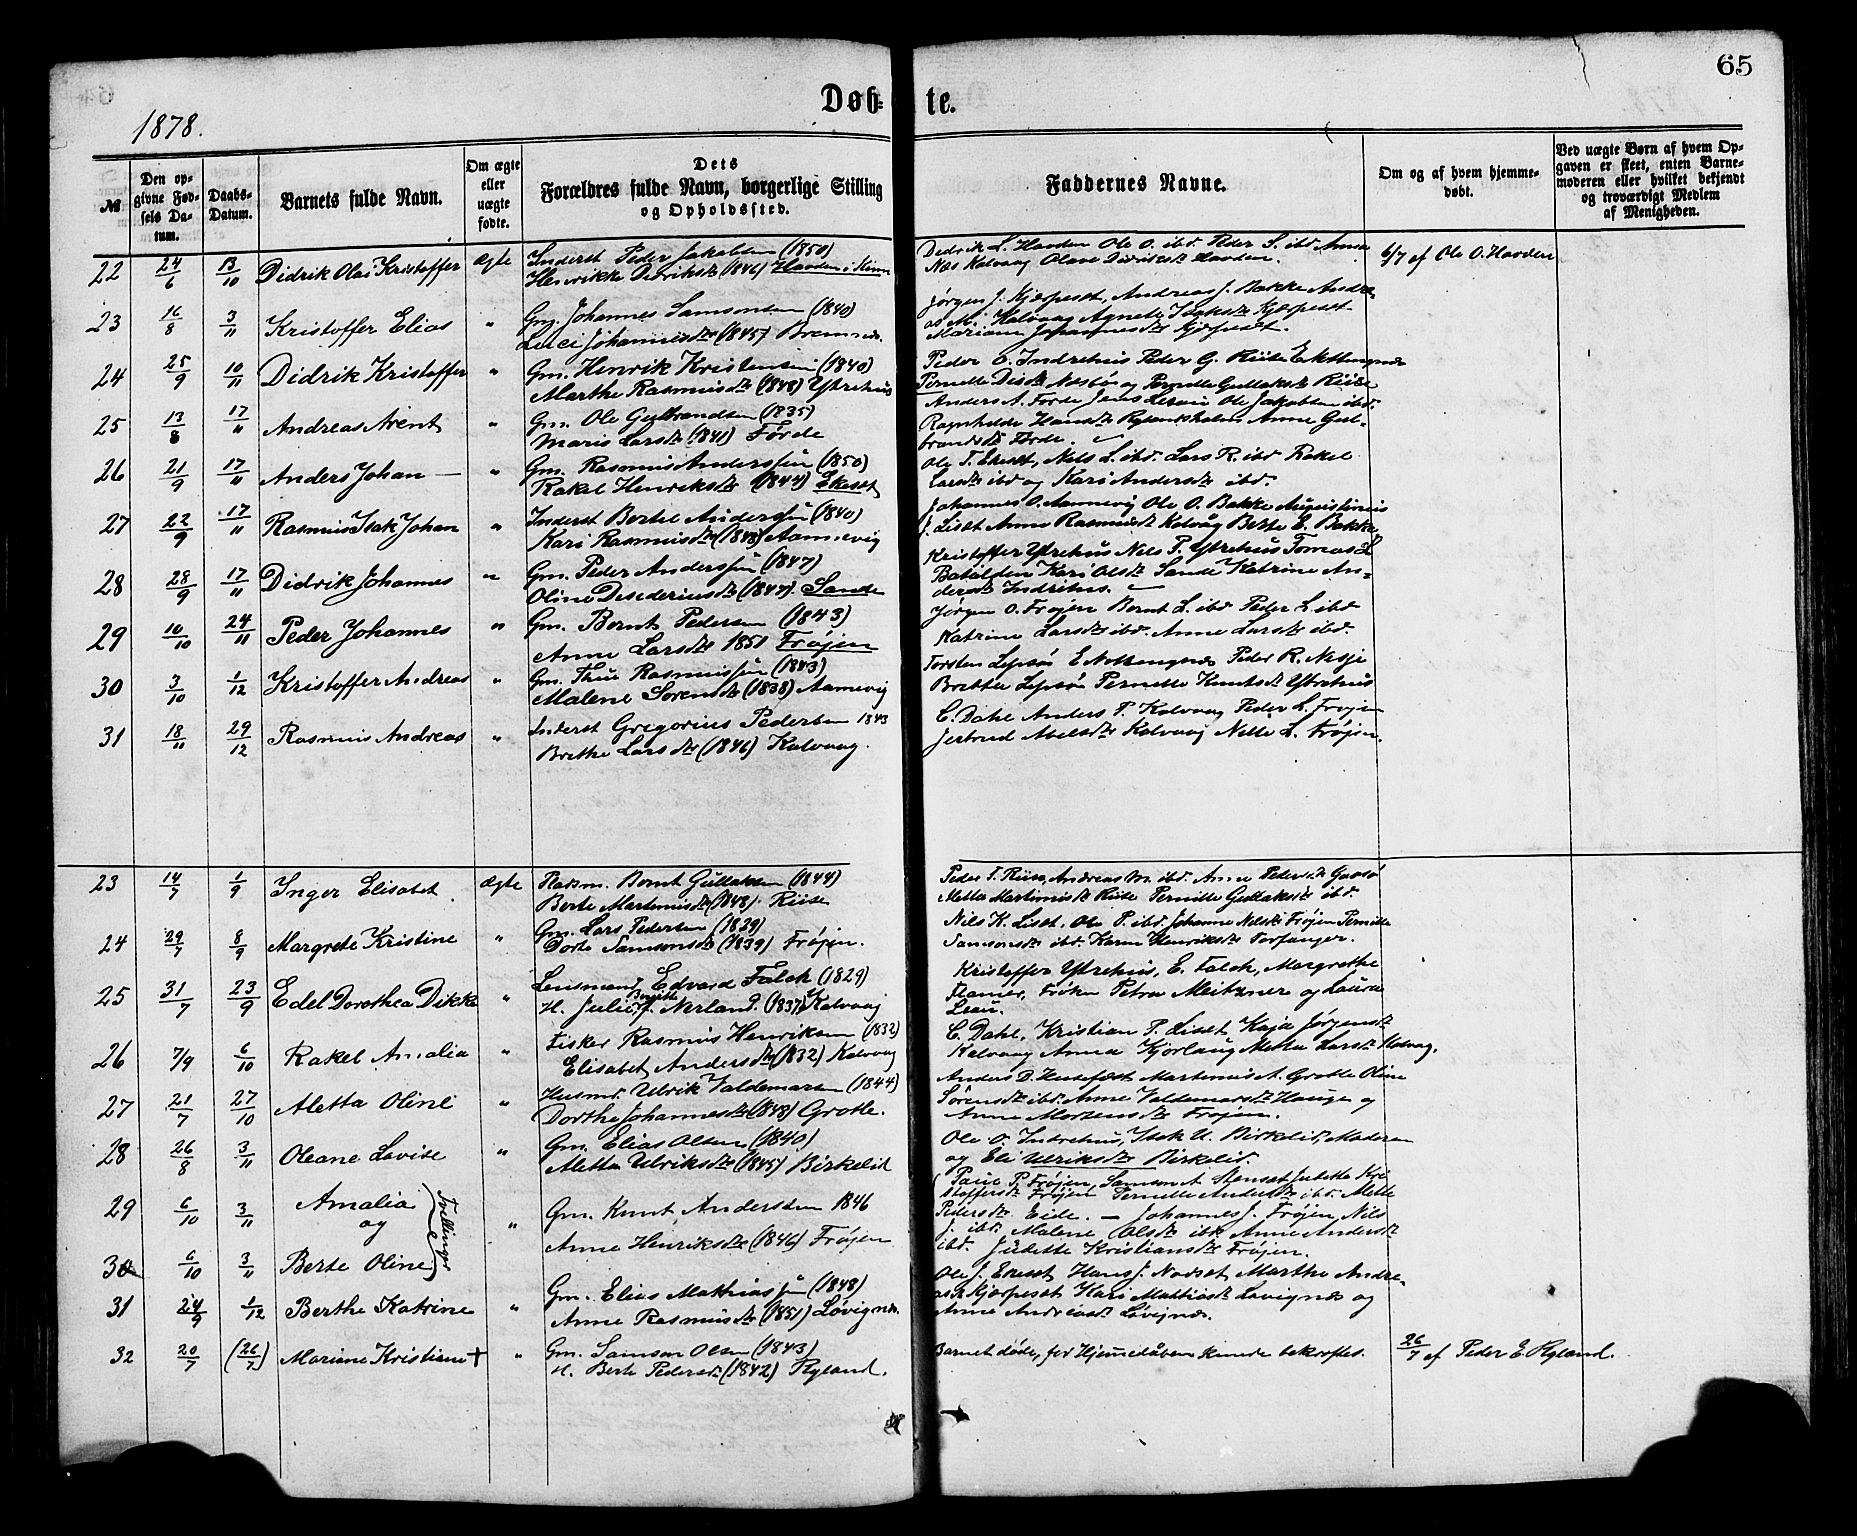 65
Døb- te.
1878.
№
Den opgivne Fødsels Datum.
Daabs-Datum.
Barnets fulde Navn.
Om ægte eller uægte fødte.
Dets Forældres fulde Navn, borgerlige Stilling og Opholdssted.
Faddernes Navne.
Om og af hvem hjemmedøbt.
Ved uægte Børn af hvem Opgaven er skeet, enten Barnemoderen eller hvilket bekjendt og troværdigt Medlem af Menigheden.
22 24/6 13/10 Didrik Olai Kristoffer ægte Inderst Peder Jakobsen (1850)
Henrikke Didriksdtr (1846) Havden i Kinn
Didrik L. Havden Ole O. ibd. Peder S. ibd. Anna
Næs Kalvaag Olave Didriksdtr Havden.
6/7 af Ole O. Havden
23 16/8 3/11 Kristoffer Elias " Gm. Johannes Samsonsen (1840)
Luci Johannisdtr (1845) Bremnes.
Jørgen J. Kjerpeset, Andreas J. Bakke Andre-
as M. Kalvaag Agnete Isaksdtr Kjerpeset
Mariane Johannesdtr Kjerpeset.
24 25/9 10/11 Didrik Kristoffer " Gm. Henrik Kristensen (1840)
Marthe Rasmusdtr (1848) Ytrehus
Peder O. Indrehus Peder G. Riise
Pernille Gullaksdtr Riise
25 13/8 17/11 Andreas Arent " Gm. Ole Gulbrandsen (1835)
Maria Larsdtr (1841) Førde
Anders A. Førde Jens Ole Jakobsen ibd.
Ragnhilde Hansdtr Anne Gul-
brandsdtr Førde.
26 21/9 17/11 Anders Johan — " Gm. Rasmus Anderssøn (1850)
Rakel Henriksdtr (1844) Ekeset
Ole T. Ekeset, Nils L. ibd. Lars R. ibd Rakel
Larsdtr ibd og Kari Andersdtr ibd.
27 22/9 17/11 Rasmus Isak Johan " Inderst Bertel Anderssøn (1840)
Kari Rasmusdtr (1843) Aamevig
Johannes O. Aamevig Ole O. Bakke Augustinus
J. Liset Anne Rasmusdtr Kalvåg Berte E. Bakke
28 28/9 17/11 Didrik Johannes " Gm. Peder Anderssøn (1847)
Oline Desideriusdtr (1847) Sande
Kristoffer Ytrehus Nils P. Ytrehus Tomas L
Batalden Kari Olsdtr Sande Katrine An-
dersdtr Indrehus.
29 10/10 24/11 Peder Johannes " Gm. Bernt Pedersen (1843)
Anne Larsdtr 1851 Frøjen
Jørgen O. Frøjen Bernt L. ibd Peder L. ibd
Katrine Larsdtr ibd. Anne Larsdtr ibd.
30 3/10 1/12 Kristoffer Andreas " Gm. Rasmussøn (1843)
Malene Sørensdtr (1838) Aamevig
Torsten Lepsøi Peder R. Nesje
Brethe Lepsøi Pernille Knutsdtr Ytrehus
31 18/11 29/12 Rasmus Andreas " Inderst Gregorius Pedersen 1843
Brethe Larsdtr (1846) Kalvaag.
C. Dahl Anders P. Kalvaag Peder L. Frøjen
Jertrud Kalvaag Nille L. Frøjen.
23 14/7 1/9 Inger Elisabet ægte Pladsm. Bernt Gullaksen (1844)
Berte Martinusdtr (1848) Riise
Peder T. Riise, Andreas M. ibd. Anne Pedersdtr
Metta Martinusdtr Riise Pernille Gullaksdtr ibd.
24 29/7 8/9 Margrete Kristine " Gm. Lars Pedersen (1829)
Dorte Samsonsdtr (1839) Frøjen.
Nils K. Liset, Ole P. ibd. Johanne Nilsdtr Frøjen Pernille
Samsonsdtr ibd. Karen Henriksdtr Torfanger.
25 31/7 23/9 Edel Dorothea Dikka " Lensmand Edvard Falck (1829)
H. Julie Bergitte f. Nerland. (1837) Kalvaag
Kristoffer Ytrehus, E. Falch, Margrethe
Kramer, Frøken Petra Meitzner og Laura
Lem.
26 7/9 6/10 Rakel Amalia " Fisker Rasmus Henriksen (1832)
Elisabet Andersdtr (1832) Kalvaag
C. Dahl, Kristian P. Liset, Kaja Jørgensdtr
Kalvaag Anna Kjørlaug Metta Larsdtr Kalvaag.
27 21/7 27/10 Aletta Oline " Husmd. Ulrik Valdemarsen (1844)
Dorthe Johannesdtr (1848) Grotle.
Anders D. Husefest Martinus A. Grotle Oline
Sørensdtr ibd. Anne Valdemarsdtr Hauge og
Anne Mortensdtr Frøjen.
28 26/8 3/11 Oleane Lovise " Gm. Elias Olsen (1840)
Aletta Ulriksdtr (1845) Birkelid
Ole O. Indrehus, Isak U. Birkelid, Moderen
og Eli Ulriksdtr Birkelid.
29 6/10 3/11 Amalia
og
Tvillinger
" Gm. Knut Anderssen 1846
Anne Henriksdtr (1846) Frøjen
30 6/10 3/11 Berte Oline
Paul P. Frøjen, Samson A. Stenset Judithe Kri-
stoffersdtr Frøjen Pernille Andersdtr ibd. Mette
Pedersdtr Eide. — Johannes J. Frøjen, Nils
J. ibd. Malene Olsdtr ibd. Anne Andersdtr
ibd. Judithe Kristiansdtr Frøjen.
31 24/9 1/12 Berthe Katrine " Gm. Elias Mathiassøn (1848)
Anne Rasmusdtr (1851) Løvignæs.
Ole J. Ekeset Hans J. Nodset Marthe Andre-
asdtr Kjerpeset Kari Mathiasdtr Løvignæs og
Anne Andreasdtr Løvignæs.
32 20/7 (26/7) Mariane Kristiane † " Gm. Samson Olsen (1843)
H. Berte Pedersdtr (1842) Ryland.
Barnet døde, før Hjemmedåben kunde bekræftes.
26/7 af Peder E. Ryland.